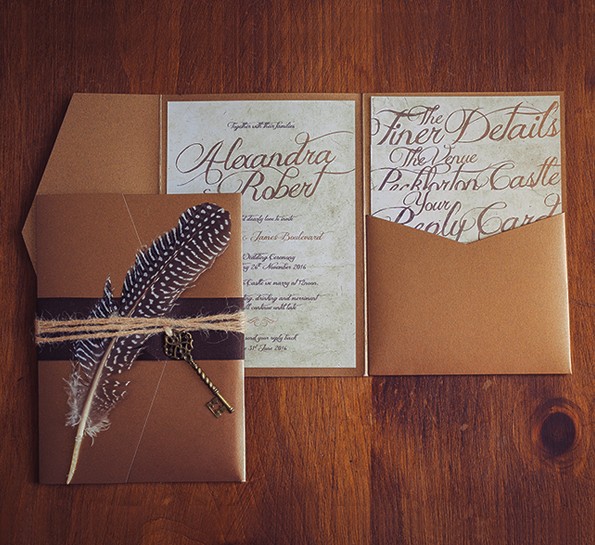 Together with their families
Alexandra
& Robert
dearly love to invite
& James Boulevard
Wedding Ceremony
26th November 2016
Castle we marry at 12noon.
drinking and merriment
continue until late
your reply back
31st June 2016
The
Finer Details
The Venue
Peckforton Castle
Your
Reply Card